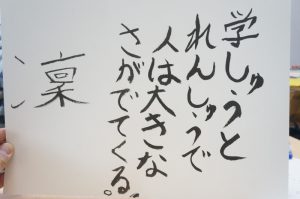 学しゅうと
れんしゅうで
人は大きな
さがでてくる。
凜